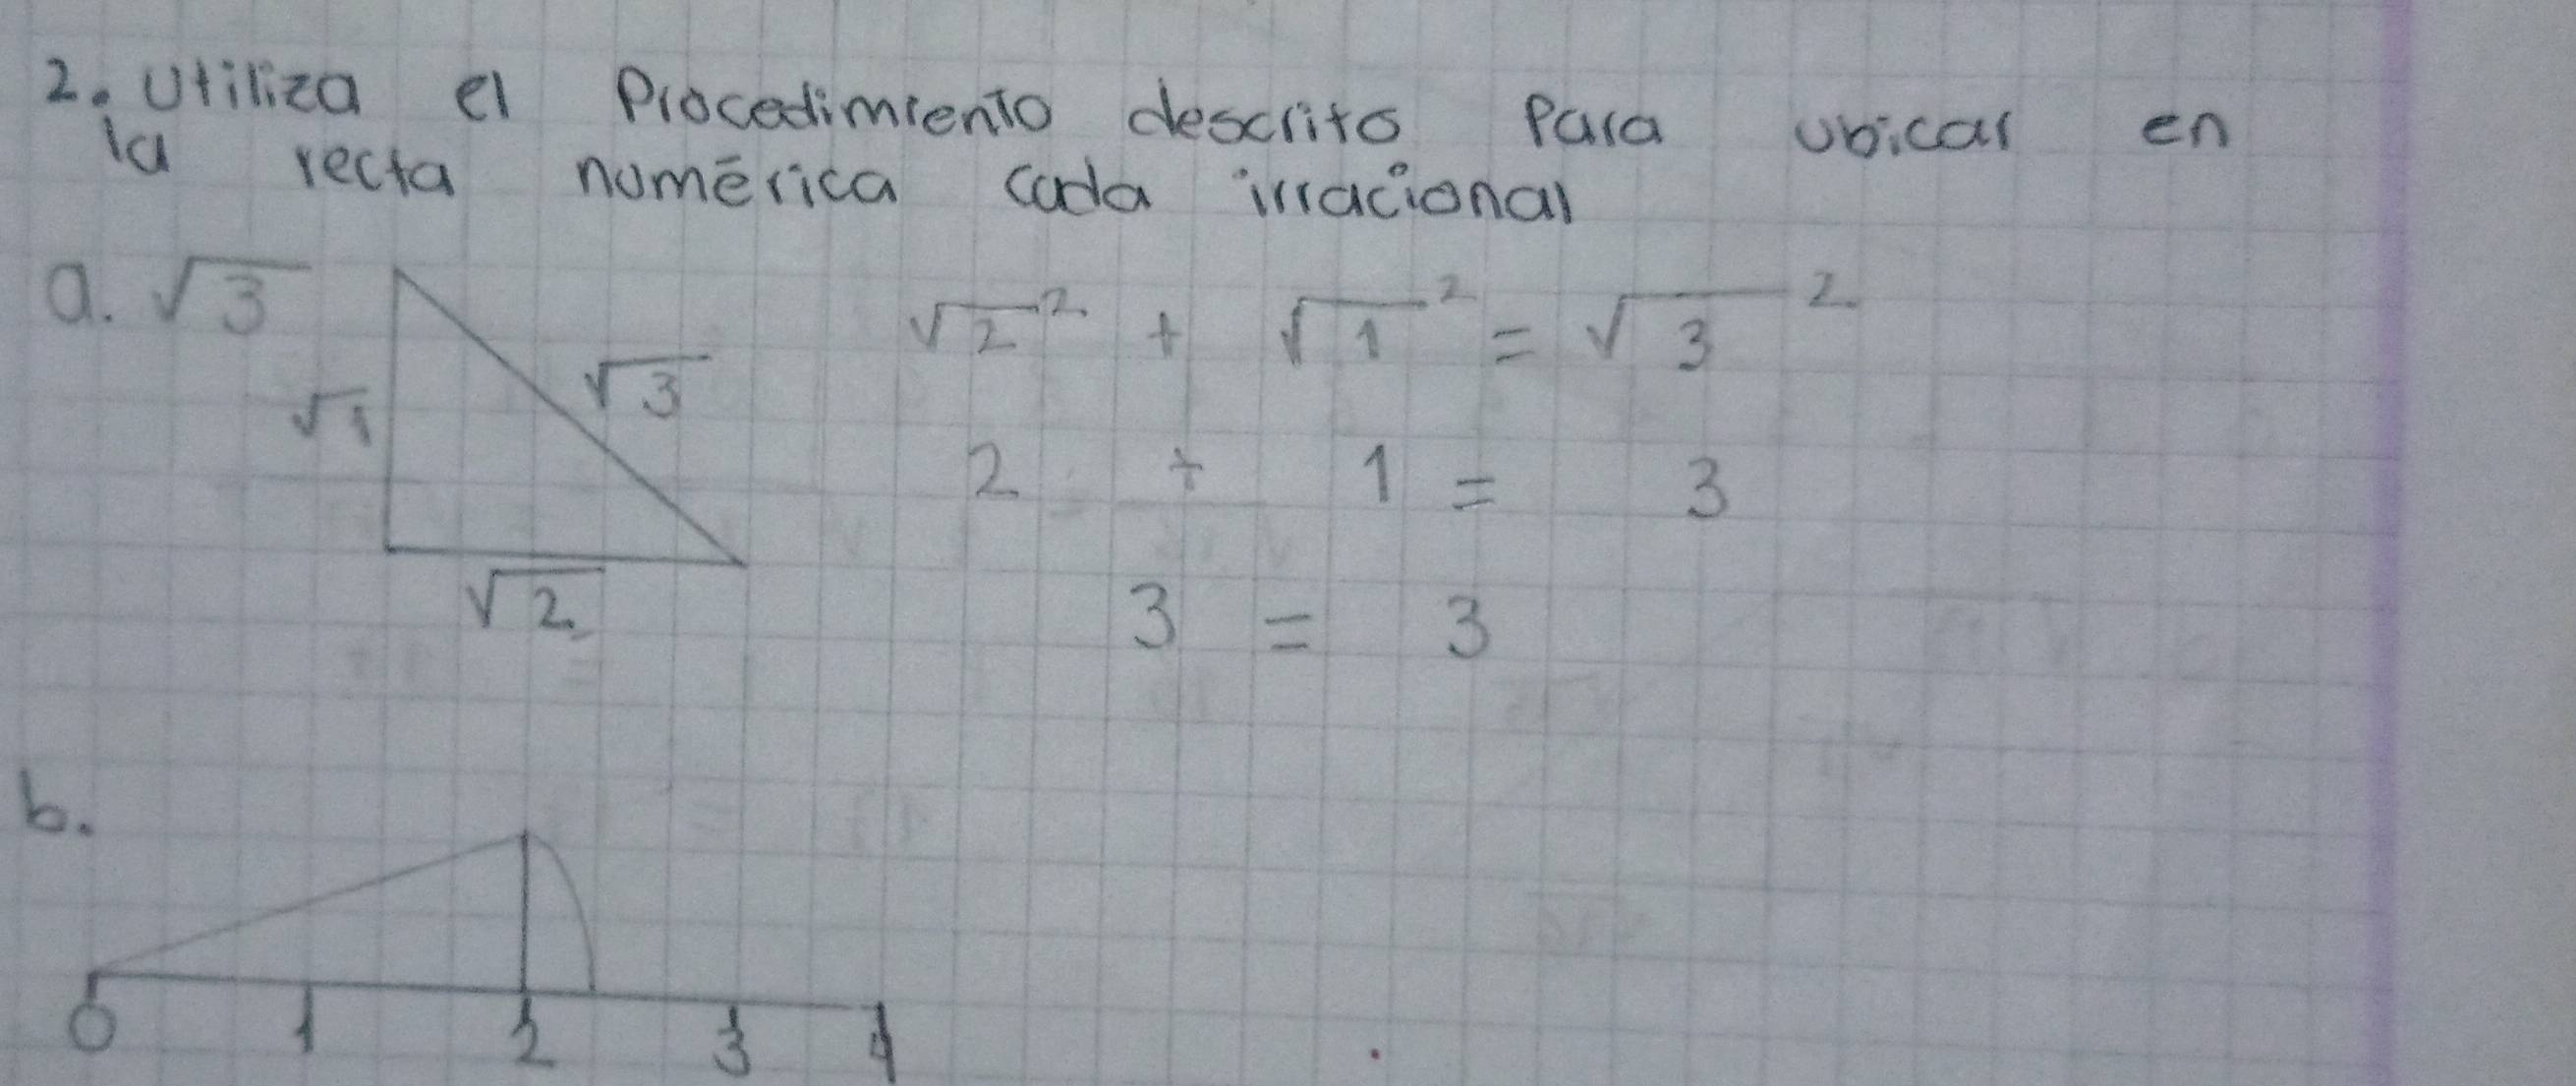 2. Utiliza el Procedimiento descrito Para ubicar en
la recta numérica cada irracional
a. √3
√2² + √1² = √3²
√1
√3
2 + 1 = 3
√2
3 = 3
b.
0 1 2 3 4